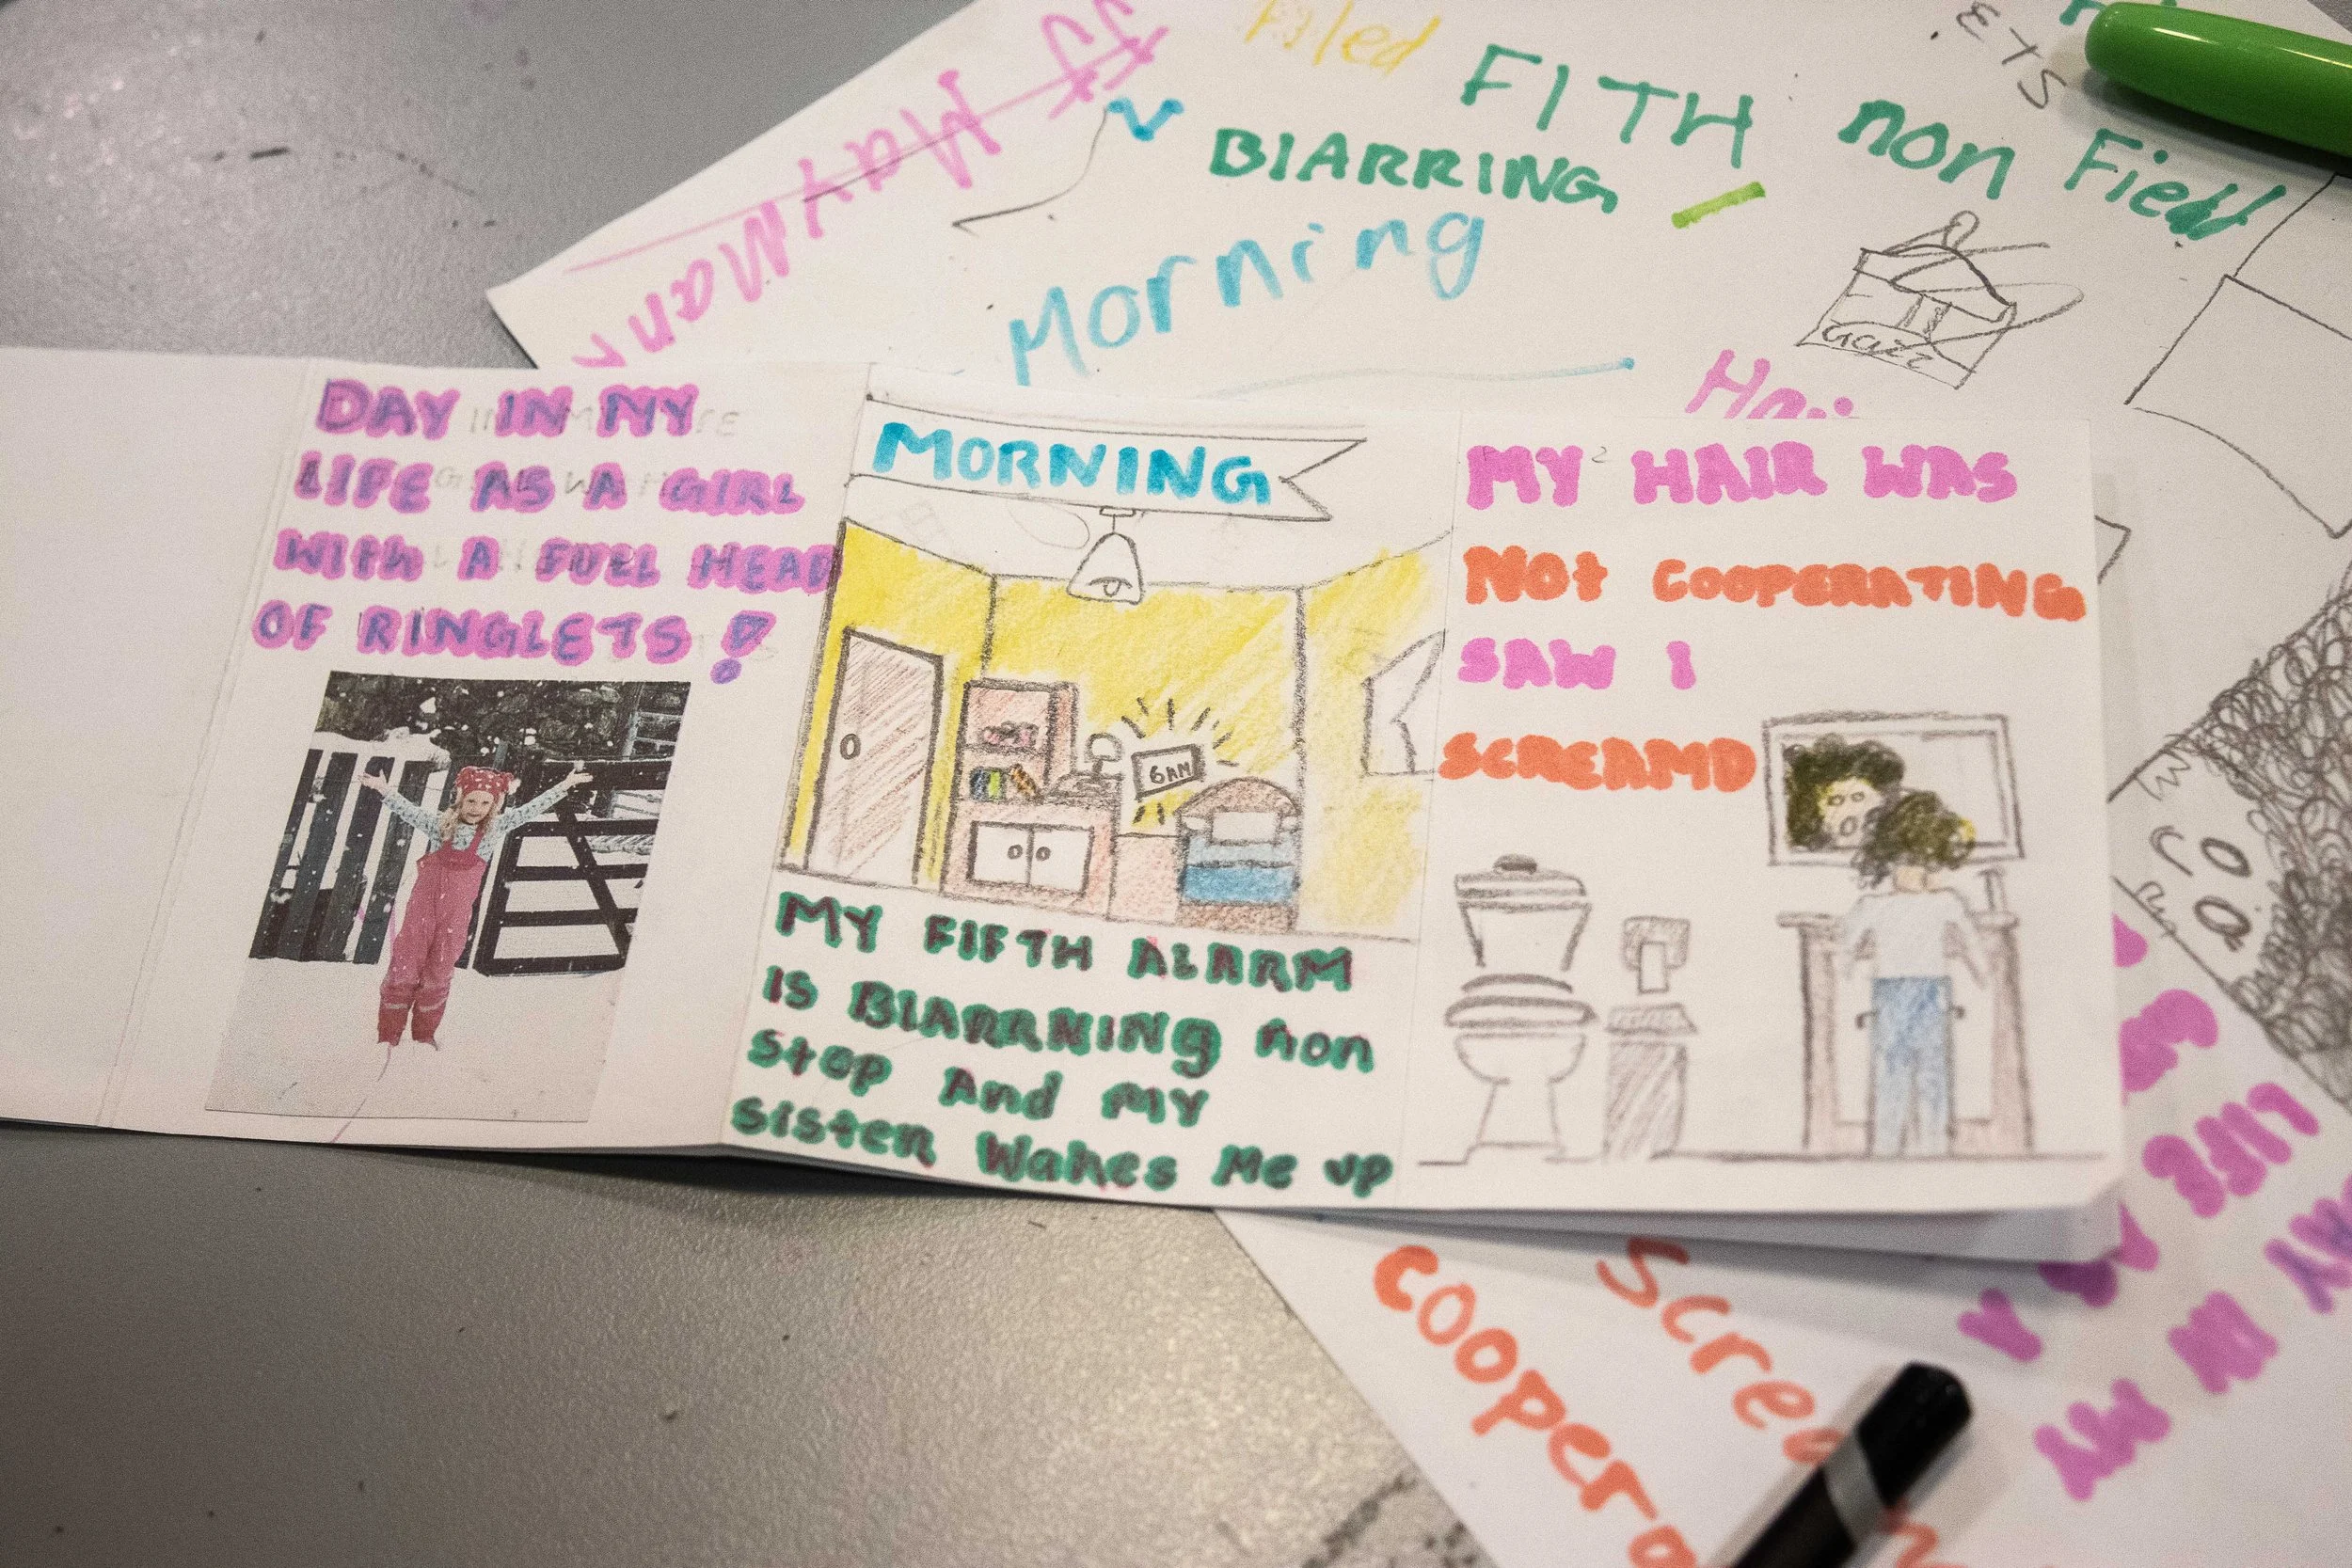 Filed
FITH non Field
BIARRING
Morning
If May Man
ETS
Gazz
DAY IN MY
LIFE AS A GIRL
WITH A FULL HEAD
OF RINGLETS!
MORNING
6AM
MY FIFTH ALARM
IS BIARRNING non
Stop And MY
Sister Wakes Me up
MY HAIR WAS
NOt COOPERATING
SAW I
SCREAMD
LIFE AS A
IN MY